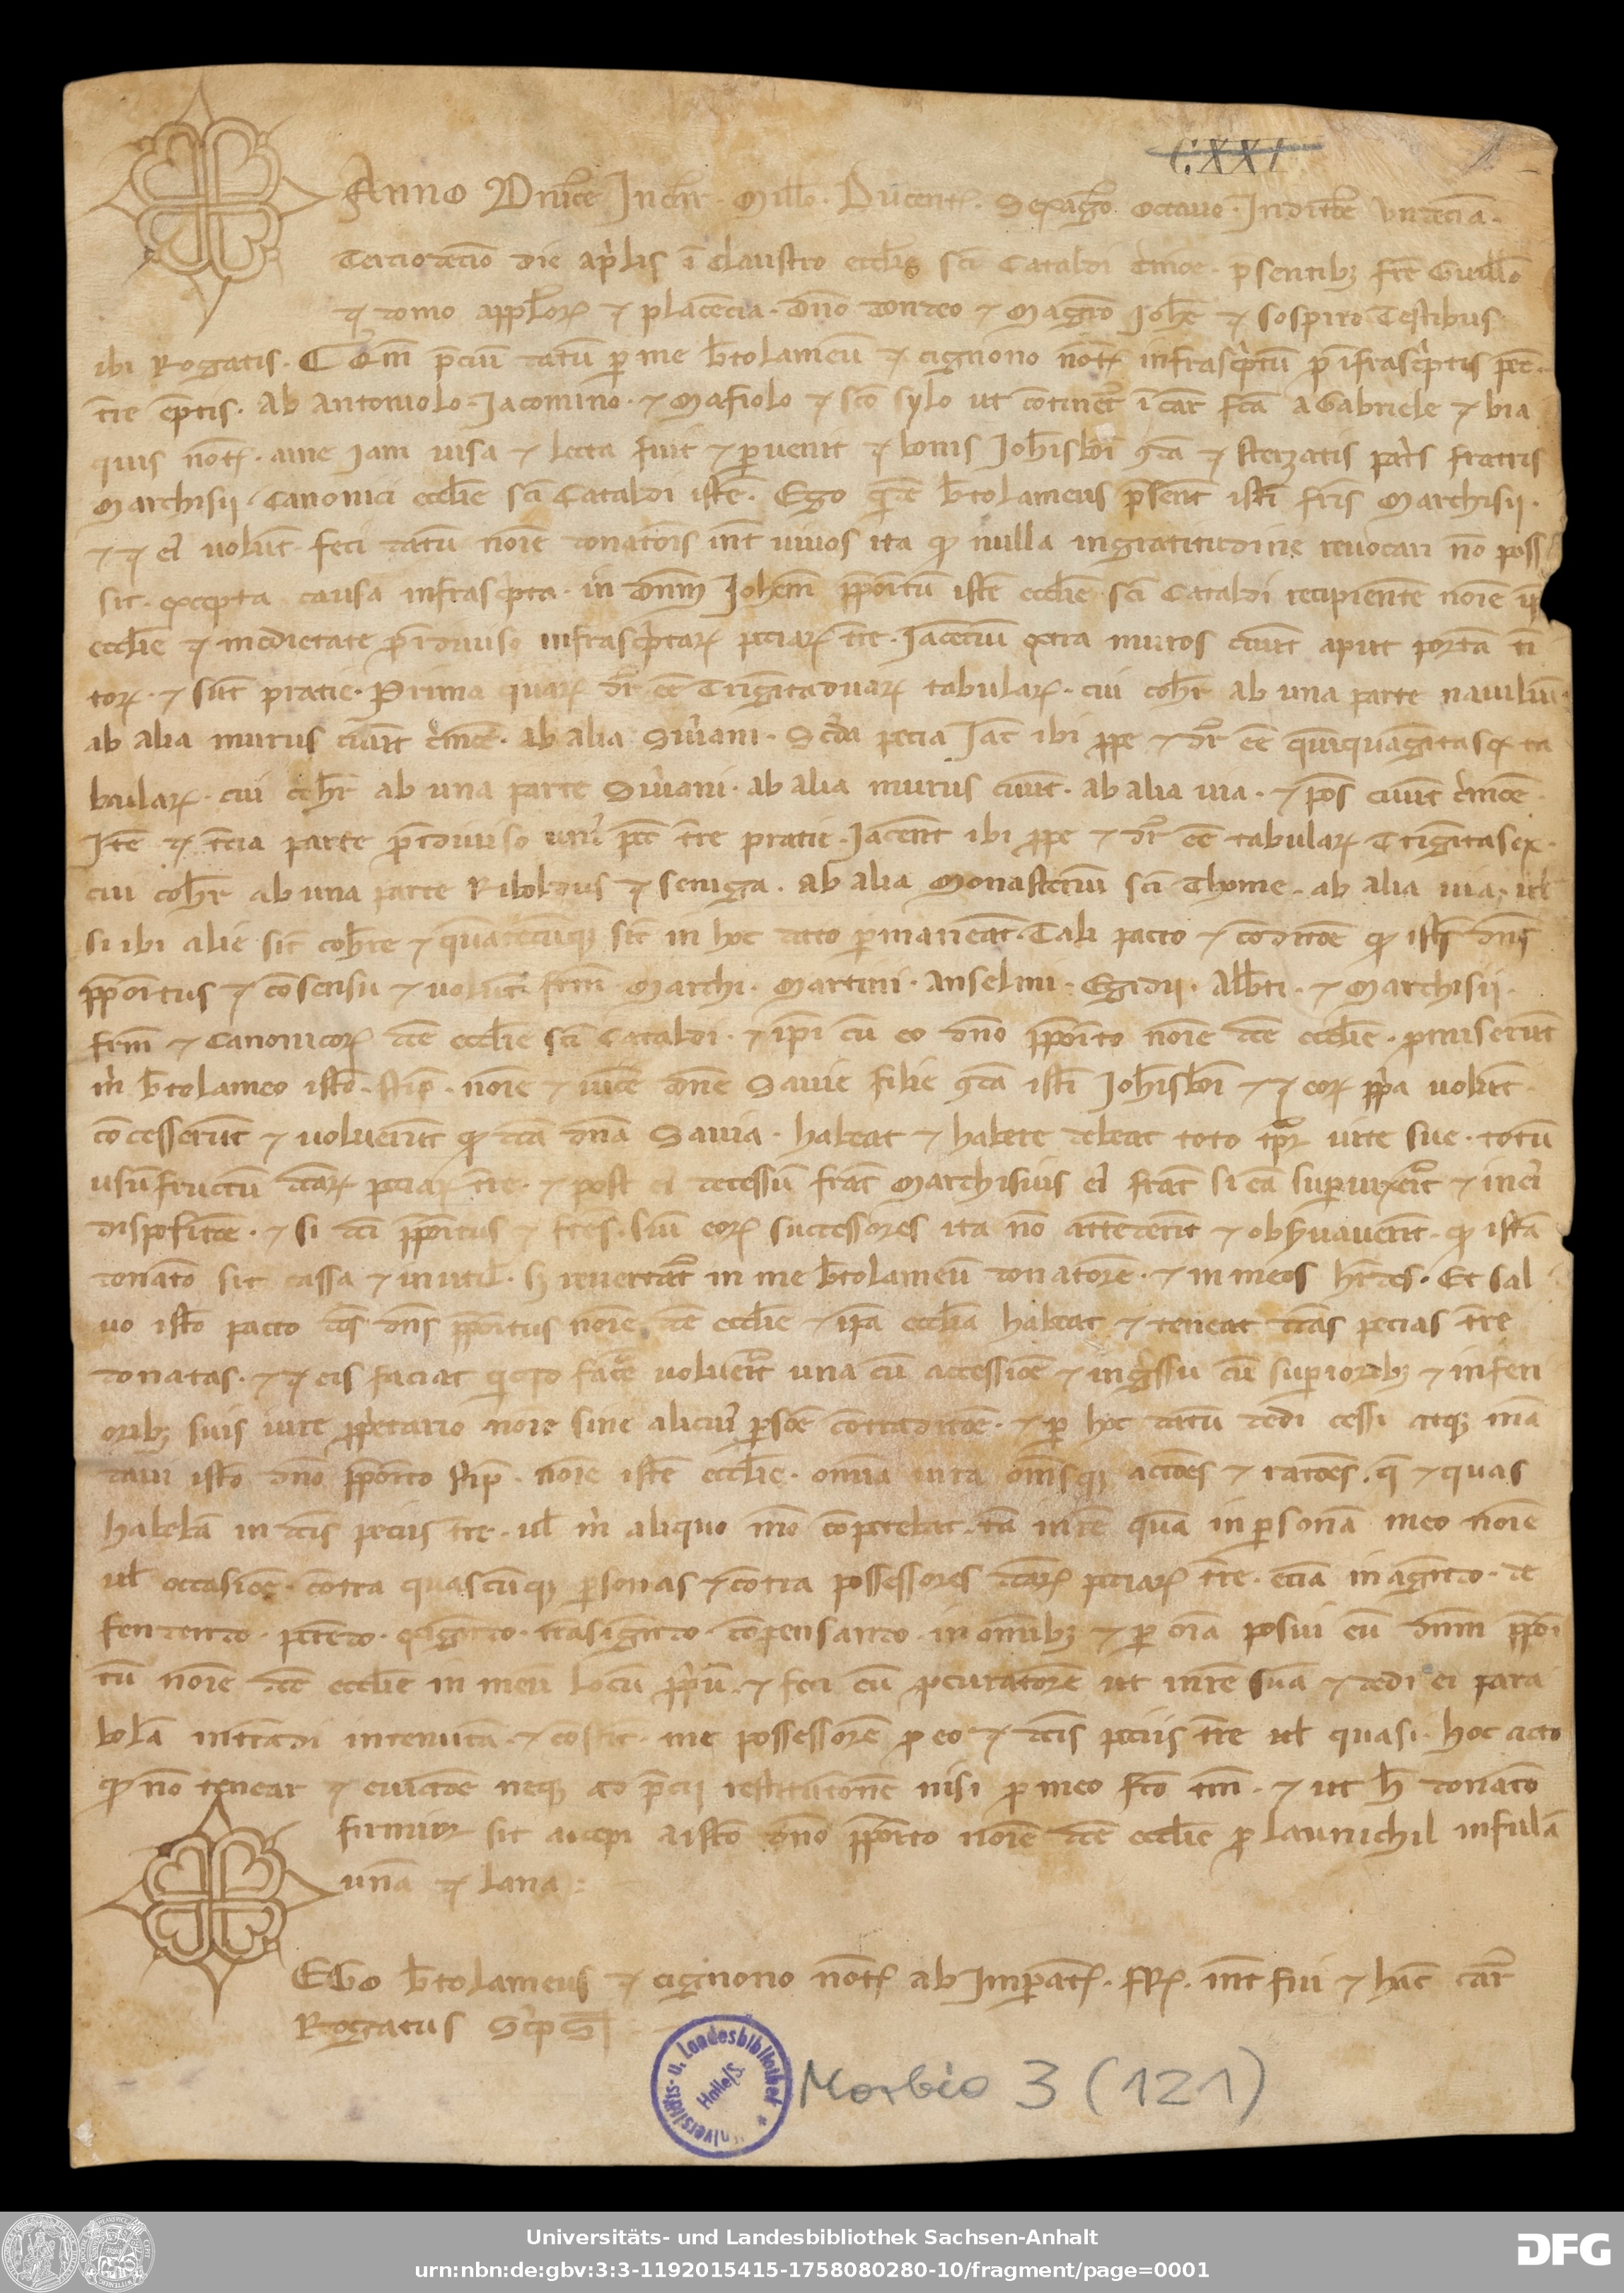 CXXI
Anno Dnice Incar. Millo. Ducent. Sexago. Octauo. Indicte Undecia.
Terciodecio die aprlis i claustro ecclie sci Cataldi Cmoe. psentibz fre Guillo
de domo applor de placencia. dno dondeo de Magro Iohe de sospiro Testibus
ibi Rogatis. Com pciu datu p me btolameu de cignono not infrascptu p ifrascptis pec.
tre eptis. Ab Antoniolo. Iacomino. et Mafiolo de sco sylo ut continet i car fca a Gabriele de bia
quis not. ame iam uisa et lecta fuit et puenit de bonis Iohisboi qda de sterzatis patris fratris
Marchisii. Canonici ecclie sci Cataldi iste. Ego qde btolameus psent isti fris Marchisii.
et de ei volut. feci datu noie donatois int uiuos ita qd nulla ingratitudine reuocari no poss
sit. excepta causa infrascpta. in dnm Iohem ppoitu iste ecclie sci Cataldi recipiente noie ip
ecclie de medietate p idiuiso infrascptar peciar tre. Iacenciu extra muros ciuit aput porta ti
tor. et sut pratie. Prima quar dr ee Trigitaduar tabular. cui cohr ab una parte nauiliu.
ab alia murus ciuit Cmoe. ab alia Suiani. Scda pecia Iac ibi ppe et dr ee quiquagitasex ta
bular. cui cohr ab una parte Suiani. ab alia murus ciuit. ab alia uia. et pos ciuit Cmoe.
Ite de tcia parte p idiuiso uni pec tre pratie. Iacent ibi ppe et dr ee tabular Trigitasex.
cui cohr ab una parte Riboldus de seniga. ab alia Monasteriu sci Thome. ab alia uia. ul
si ibi alie sit cohrte et quatecuqz sit in hoc dato pmaneat. Tali pacto et condicoe qd iste dns
ppoitus de consensu et uolut. frm Marchi. Martini. Anselmi. Egidii. Albti. et Marchisii.
frm et Canonicor dce ecclie sci Cataldi. et ipi cu eo dno ppoito noie dce ecclie. pmiserut
m btolameo isto. stip. noie et uice dne Sauie filie qda isti Iohisboi et de eor ppa volut.
concesserut et uoluerut qd dca dna Sauia. habeat et habere debeat toto tpr uite sue. totu
usufructu dcar peciar tre. et post ei decessu frat Marchisius ei frat si ea supuixerit et in ei
dispositoe. et si dci ppoitus et fres. siu eor successores ita no attederit et obsuauerit. qd ista
donato sit cassa et inutil. s reuertat in me btolameu donatore. et in meos hedes. Et sal
uo isto pacto dcs dns ppoitus noie dce ecclie et ipa ecclia habeat et teneat dcas pecias tre
donatas. et de eis faciat quicqd face uoluerit una cu accessioe et ingssu cu superioribz et inferi
oribz suis iure ppetario noie sine alicui psoe contradicoe. et p hoc datu dedi cessi atqz ma
daui isto dno ppoito stip. noie iste ecclie. omia iura omsqz actoes et ratoes. q et quas
habeba in dcis peciis tre. ul m aliquo mo conpetebat. ta in re qua in psona meo noie
ul occasioe. contra quascuqz psonas et contra possessores dcar peciar tre. ecia in agedo. de
fendendo. petedo. exigedo. trasigedo. conpensando. in omibz et p oia posui eu dnm ppoi
tu noie dce ecclie in meu locu ppiu et feci eu pcuratore ut in re sua et dedi ei para
bola intradi in tenuta et costit. me possessore p eo de dcis peciis tre ul quasi. hoc acto
qd no tenear de euictoe neqz ad pcii restitutone nisi p meo fco tm. et ut h donato
firmior sit accepi a isto dno ppoito noie dce ecclie p launichil infula
una de lana:
EGo btolameus de cignono not ab Impat. FR. int fui et hac car
Rogatus Scps
Universitäts- u. Landesbibliothek
Halle/S.
Morbio 3 (121)
Universitäts- und Landesbibliothek Sachsen-Anhalt
urn:nbn:de:gbv:3:3-1192015415-1758080280-10/fragment/page=0001
DFG